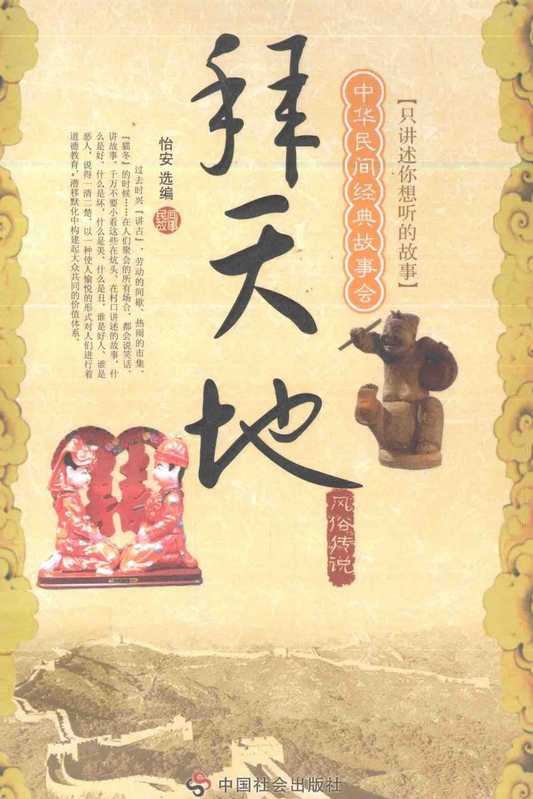 【只讲述你想听的故事】
中华民间经典故事会
拜天地
风俗传说
怡安 选编
过去时兴『讲古』，劳动的间歇、热闹的市集、
『猫冬』的时候……在人们聚会的所有场合，都会说笑话、
讲故事，千万不要小看这些在炕头、在村口讲述的故事，什
么是好、什么是坏，什么是美、什么是丑，谁是好人、谁是
恶人，说得一清二楚，以一种使人愉悦的形式对人们进行着
道德教育，潜移默化中构建起大众共同的价值体系。
中国社会出版社